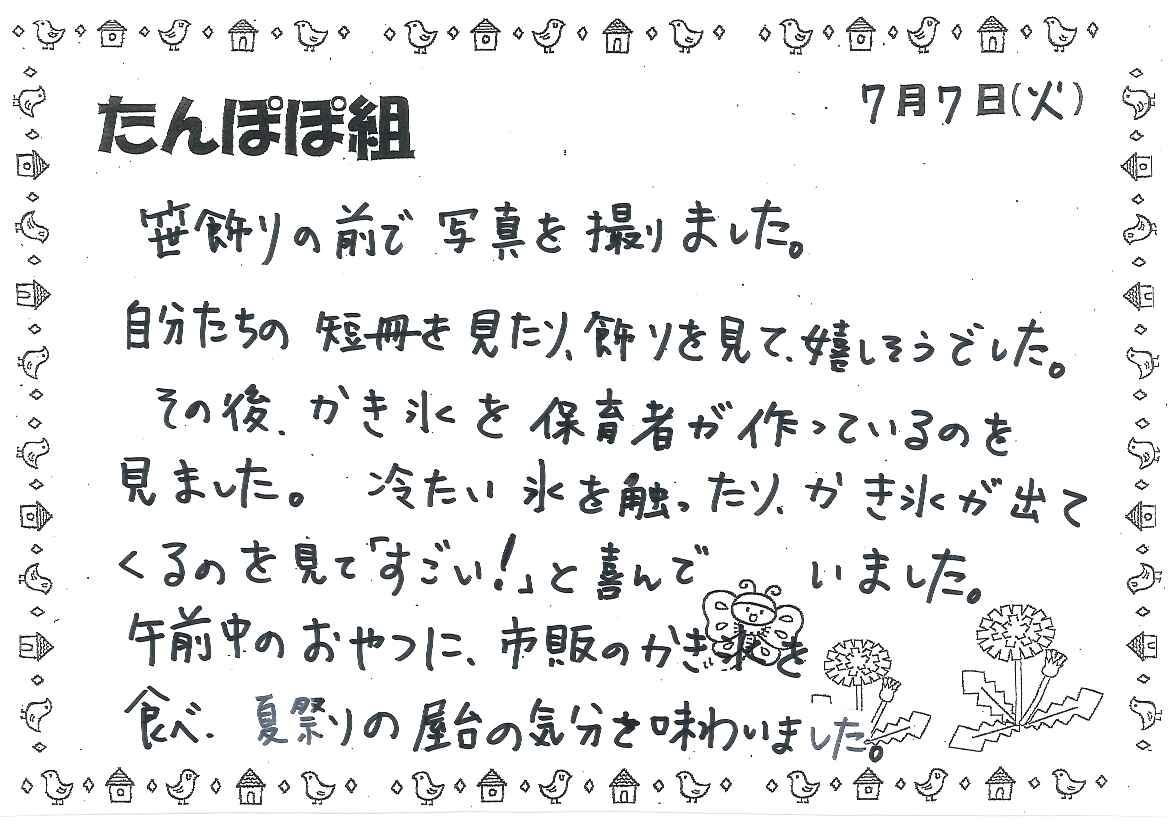 たんぽぽ組
7月7日(火)
笹飾りの前で写真を撮りました。
自分たちの短冊を見たり、飾りを見て、嬉しそうでした。
その後、かき氷を保育者が作っているのを
見ました。冷たい氷を触ったり、かき氷が出て
くるのを見て「すごい!」と喜んでいました。
午前中のおやつに、市販のかき氷を
食べ、夏祭りの屋台の気分を味わいました。